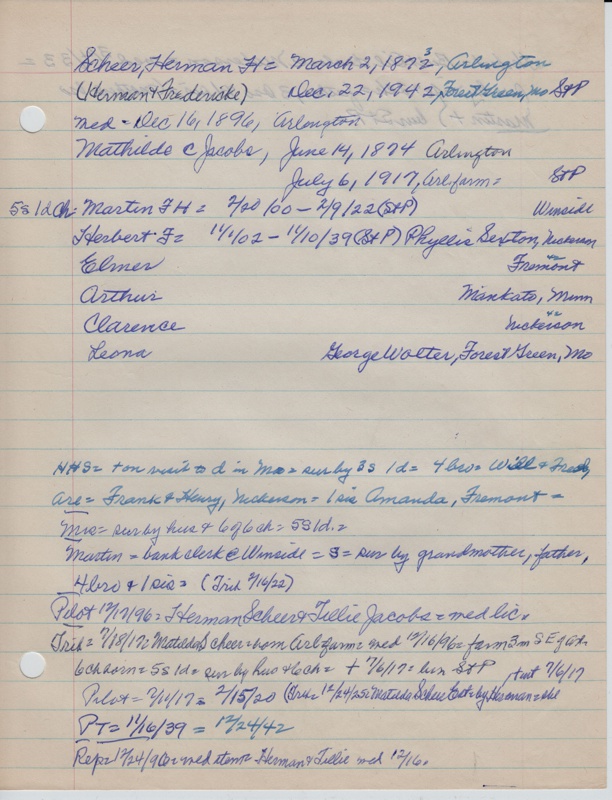 Scheer, Herman H = March 2, 1872, Arlington
3
(Herman & Fredericke) Dec. 22, 1942, Forest Green, Mo St P
med - Dec 16, 1896, Arlington
Mathilde C Jacobs, June 14, 1874 Arlington
July 6, 1917, Arl farm = St P
5s 1d Ch: Martin F H = 2/20/00 - 2/9/22 (St P) Winside
Herbert F = 11/1/02 - 11/10/39 (St P) Phyllis Sexton, Nickerson
Elmer Fremont 42
Arthur Mankato, Minn
Clarence Nickerson 42
Leona George Wolter, Forest Green, Mo
HHS = + on visit to d in Mo = sur by 3s 1d = 4 bro = Will & Fred,
Arl = Frank & Henry, Nickerson = 1 sis Amanda, Fremont =
Mrs = sur by hus & 6 of 6 ch = 5S 1d. =
Martin = bank clerk @ Winside = S = sur by grandmother, father,
4 bro & 1 sis = (Trib 2/16/22)
Pilot 12/17/96 = Herman Scheer & Tillie Jacobs = med lic.
Trib = 7/18/17 = Matilda Scheer = born Arl farm = med 12/16/96 = farm 3 m S E of
6 ch born = 5S 1d = sur by hus & 6 ch = + 7/6/17 = bur St P
7/6/17
Pilot = 7/11/17 = 2/15/20 (Trib = 12/24/25 = Matilda Scheer Est = by Herman
PT = 11/16/39 = 12/24/42
Rep = 12/24/96 = med item = Herman & Tillie med 12/16.